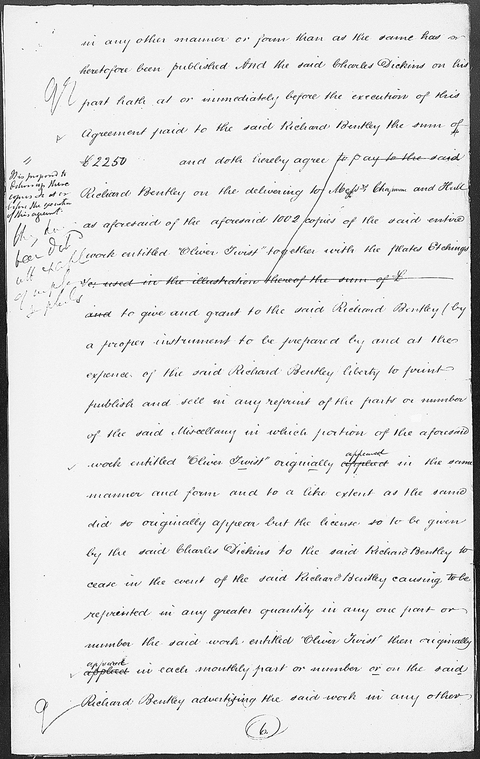 in any other manner or form than as the same has or
heretofore been published And the said Charles Dickins on his
part hath at or immediately before the execution of this
Agreement paid to the said Richard Bentley the sum of
£2250 and doth hereby agree to pay to the said
Richard Bentley on the delivering to Messrs Chapman and Hall
as aforesaid of the aforesaid 1002 copies of the said entire
work entitled "Oliver Twist" together with the plates Etchings
&c used in the illustration thereof the sum of £
and to give and grant to the said Richard Bentley (by
a proper instrument to be prepared by and at the
expence of the said Richard Bentley liberty to print
publish and sell in any reprint of the parts or number
of the said Miscellany in which portion of the aforesaid
appeared
work entitled "Oliver Twist" originally applied in the same
manner and form and to a like extent as the same
did so originally appear but the license so to be given
by the said Charles Dickins to the said Richard Bentley to
cease in the event of the said Richard Bentley causing to be
reprinted in any greater quantity in any one part or
number the said work entitled "Oliver Twist" then originally
appeared
applied in each monthly part or number or on the said
Richard Bentley advertising the said work in any other
(6)
It is proposed to
deliver these
copies at or
before the execution
of this agreemt.